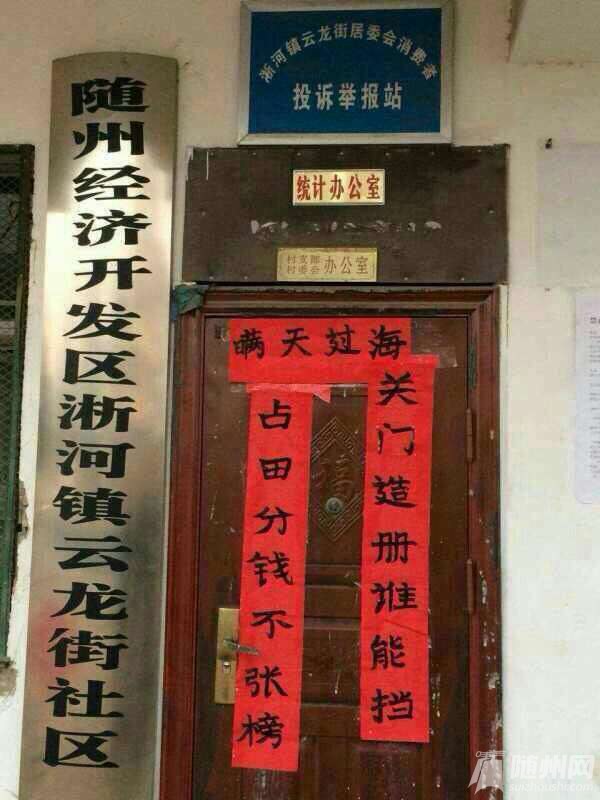 淅河镇云龙街居委会消费者
投诉举报站
统计办公室
村支部
村委会
办公室
随州经济开发区淅河镇云龙街社区
瞒天过海
关门造册谁能挡
占田分钱不张榜
福
随州网